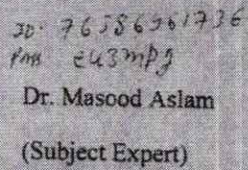 ID: 76586961736
Pms eu3mpg
Dr. Masood Aslam
(Subject Expert)